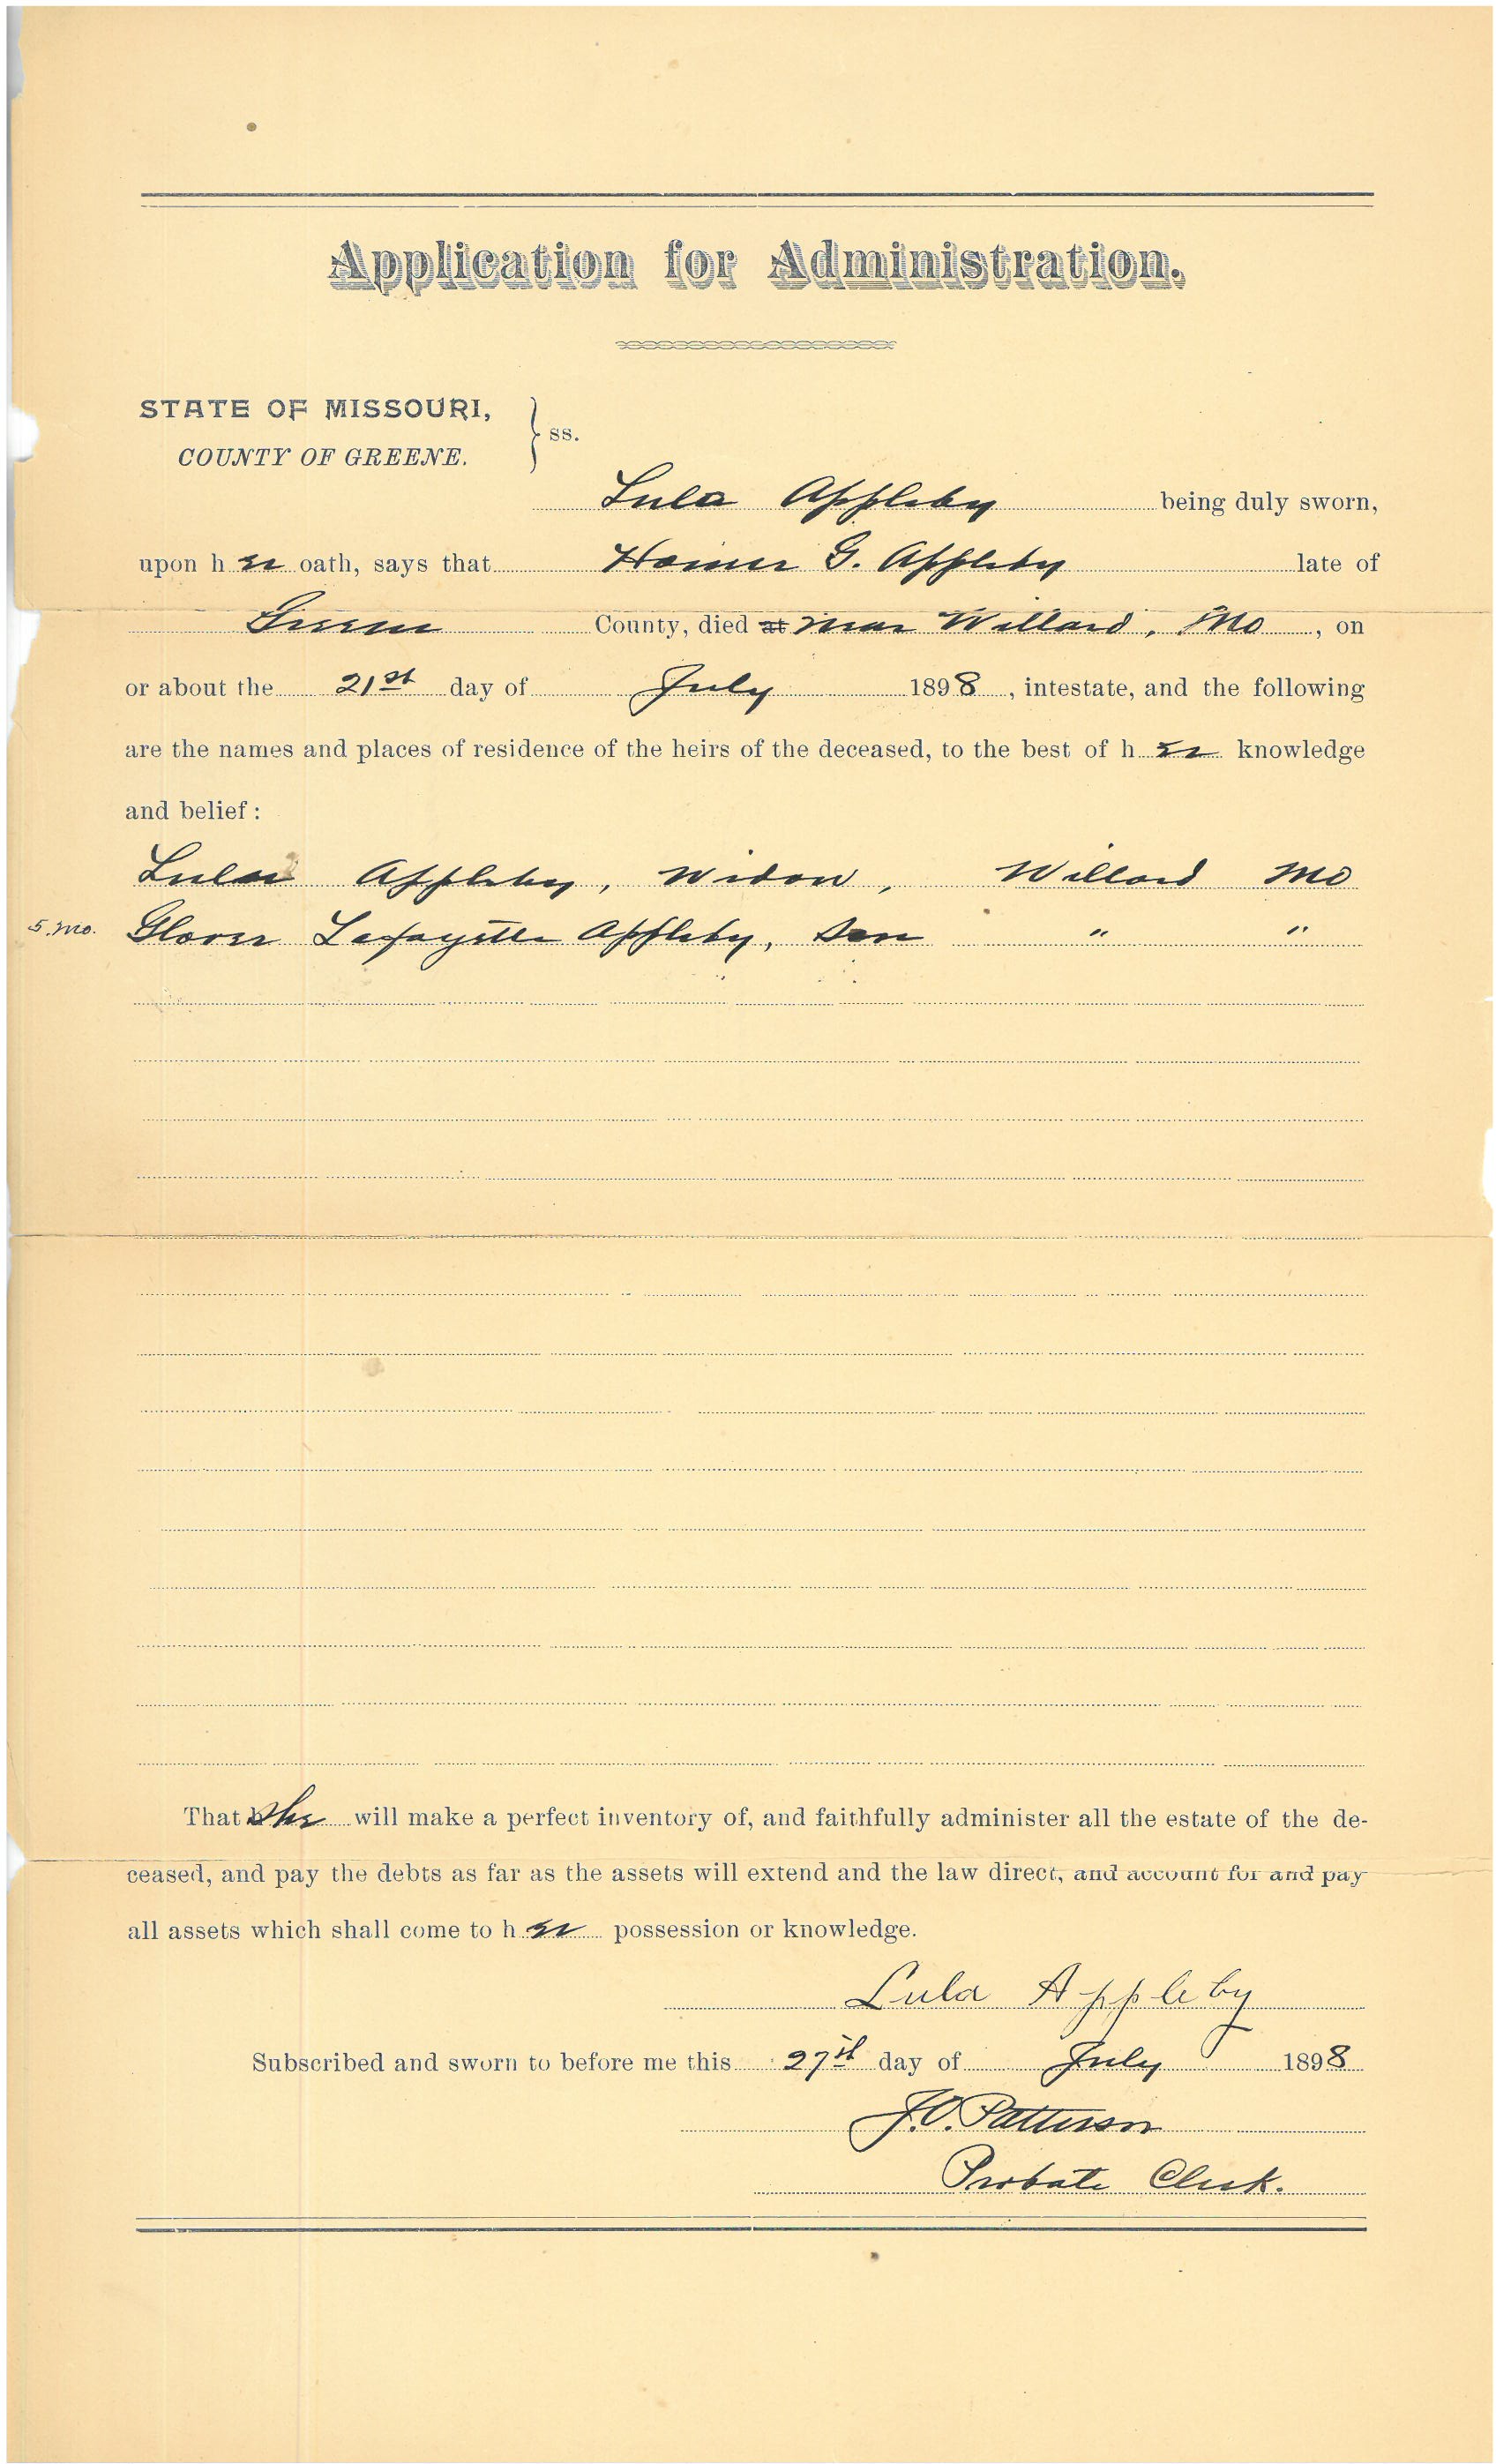 Application for Administration.
STATE OF MISSOURI,
COUNTY OF GREENE.
} ss.
Lula Appleby being duly sworn,
upon her oath, says that Homer G. Appleby late of
Greene County, died at near Willard, Mo, on
or about the 21st day of July 1898, intestate, and the following
are the names and places of residence of the heirs of the deceased, to the best of her knowledge
and belief:
Lula Appleby, Widow, Willard Mo
5. mo. Glover Lafayette Appleby, Son " "
That she will make a perfect inventory of, and faithfully administer all the estate of the de-
ceased, and pay the debts as far as the assets will extend and the law direct, and account for and pay
all assets which shall come to her possession or knowledge.
Lula Appleby
Subscribed and sworn to before me this 27th day of July 1898
J.O. Patterson
Probate Clerk.